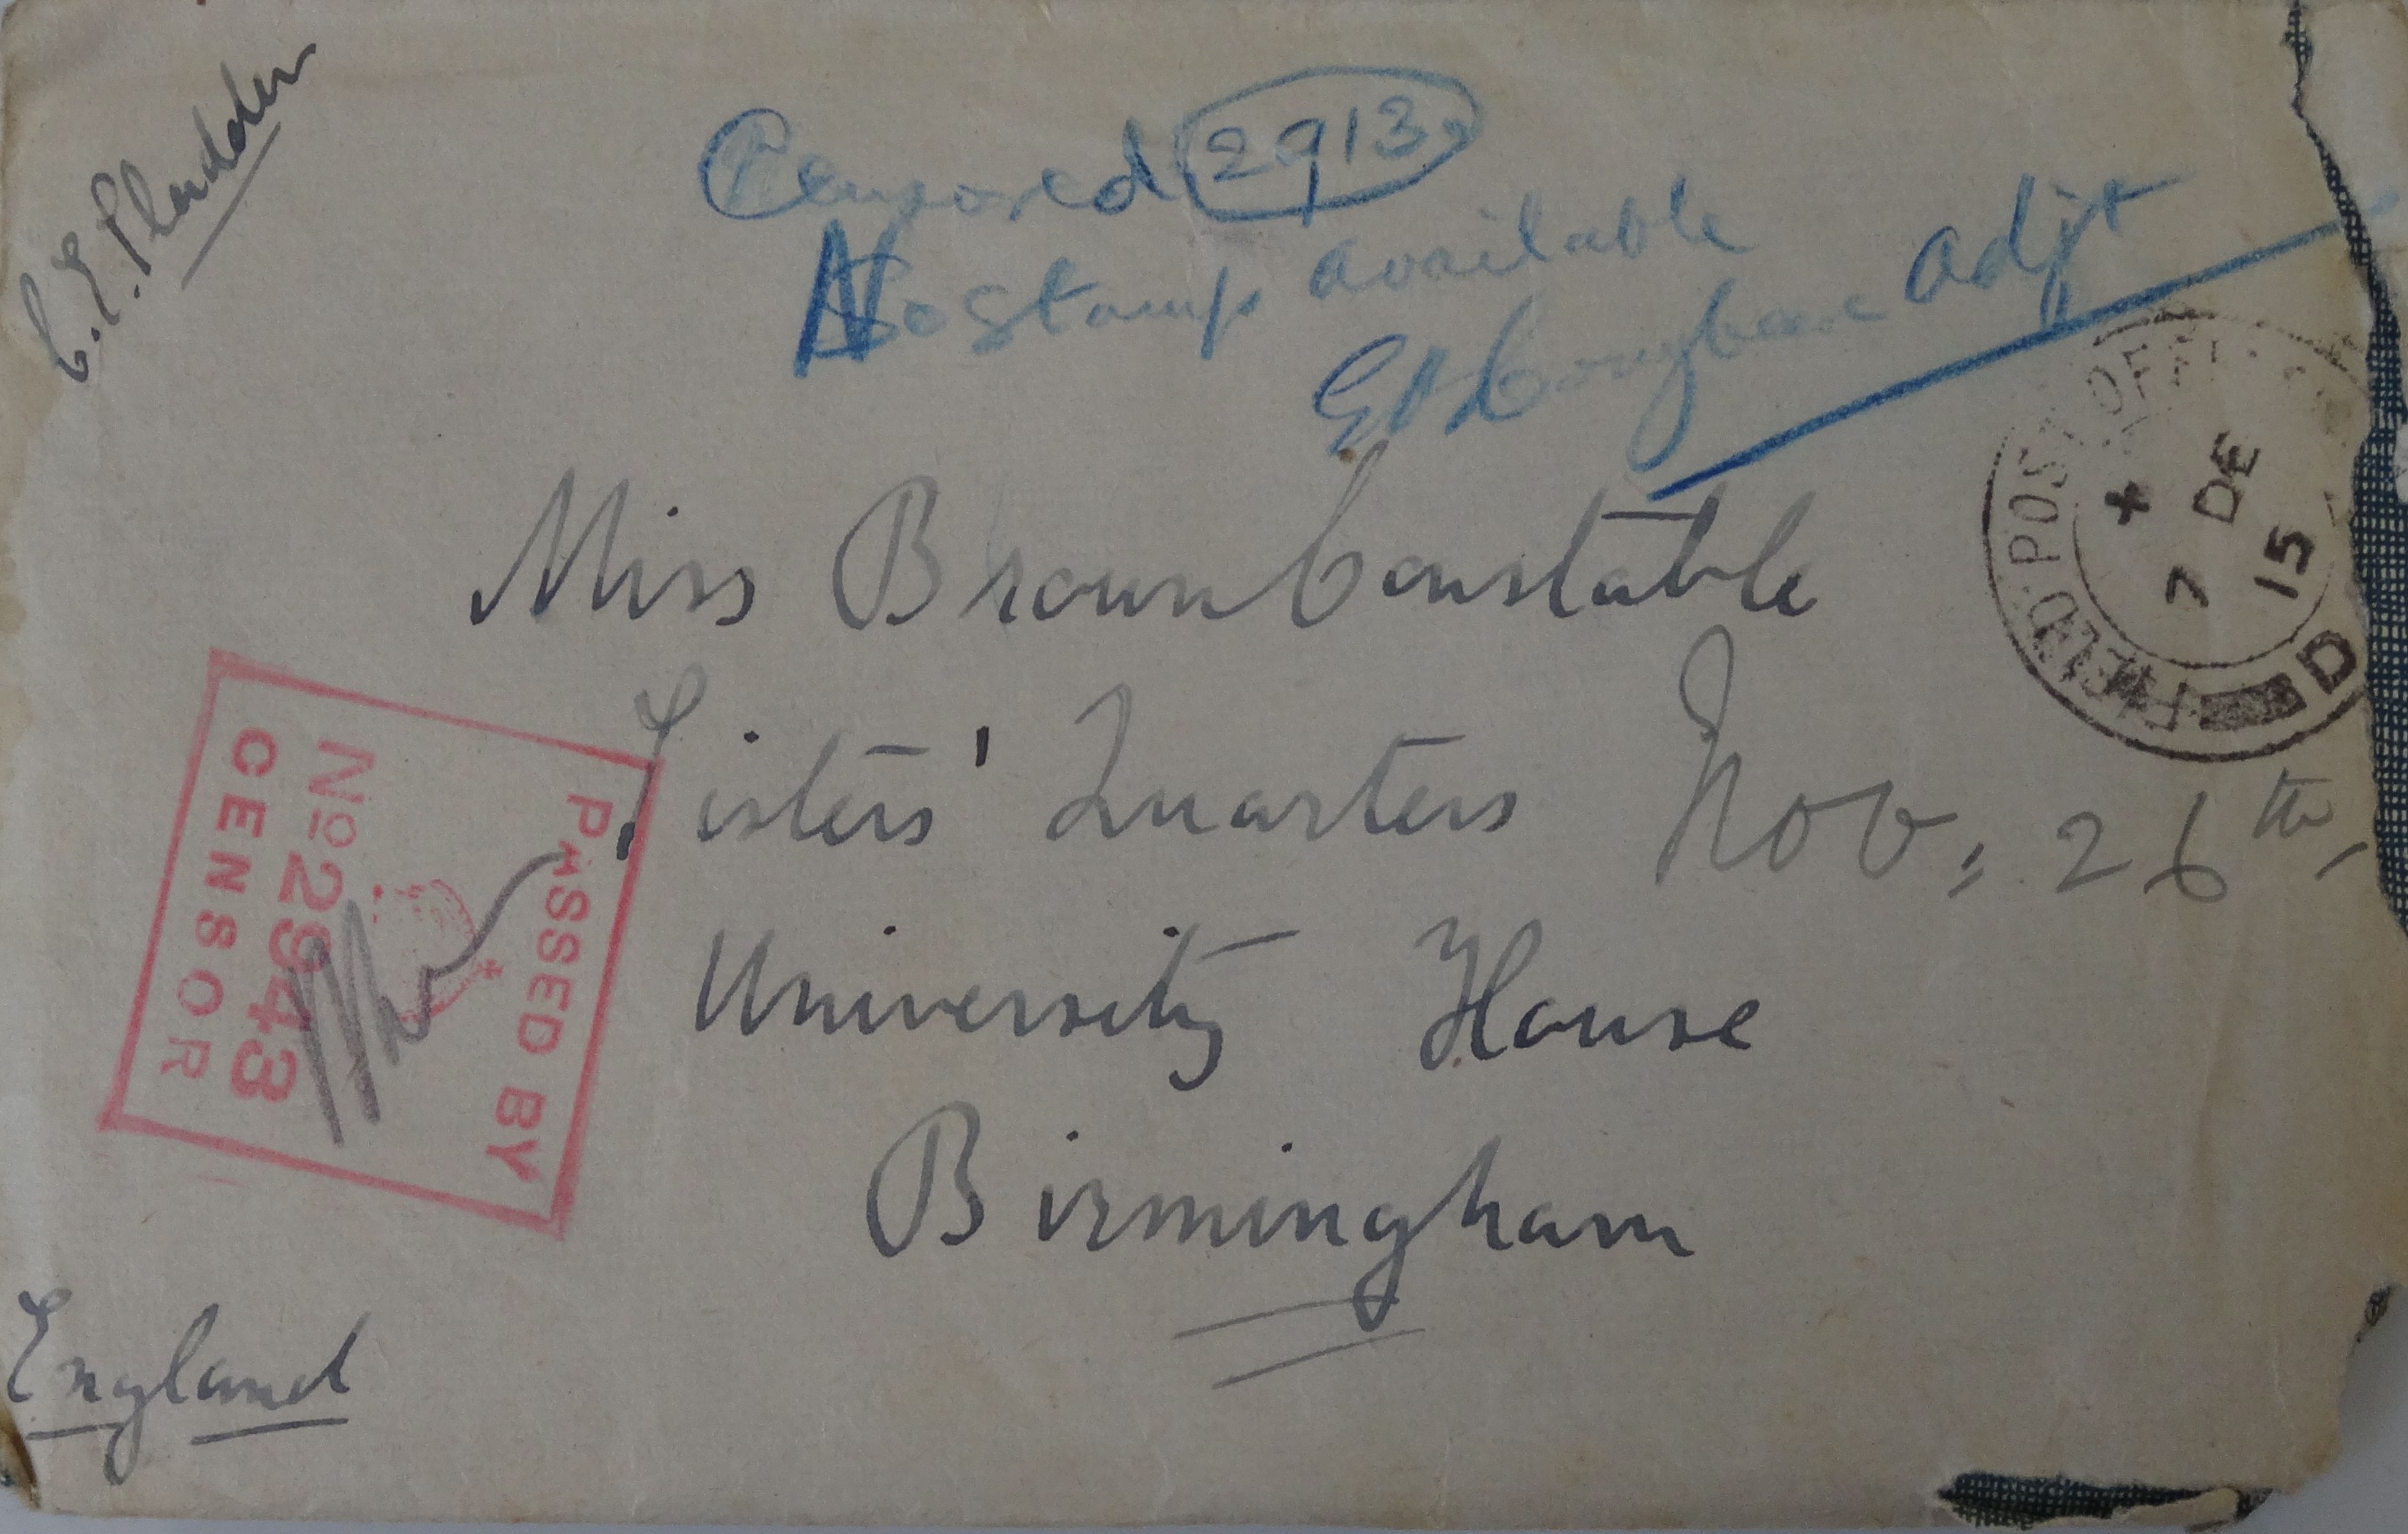 Censored 2913.
No Stamp available
Adjt
Miss Brown Constable
Sisters' Quarters
University House
Birmingham
England
Nov: 26th
PASSED BY
No 2943
CENSOR
FIELD POST OFFICE
D
7 DE
15